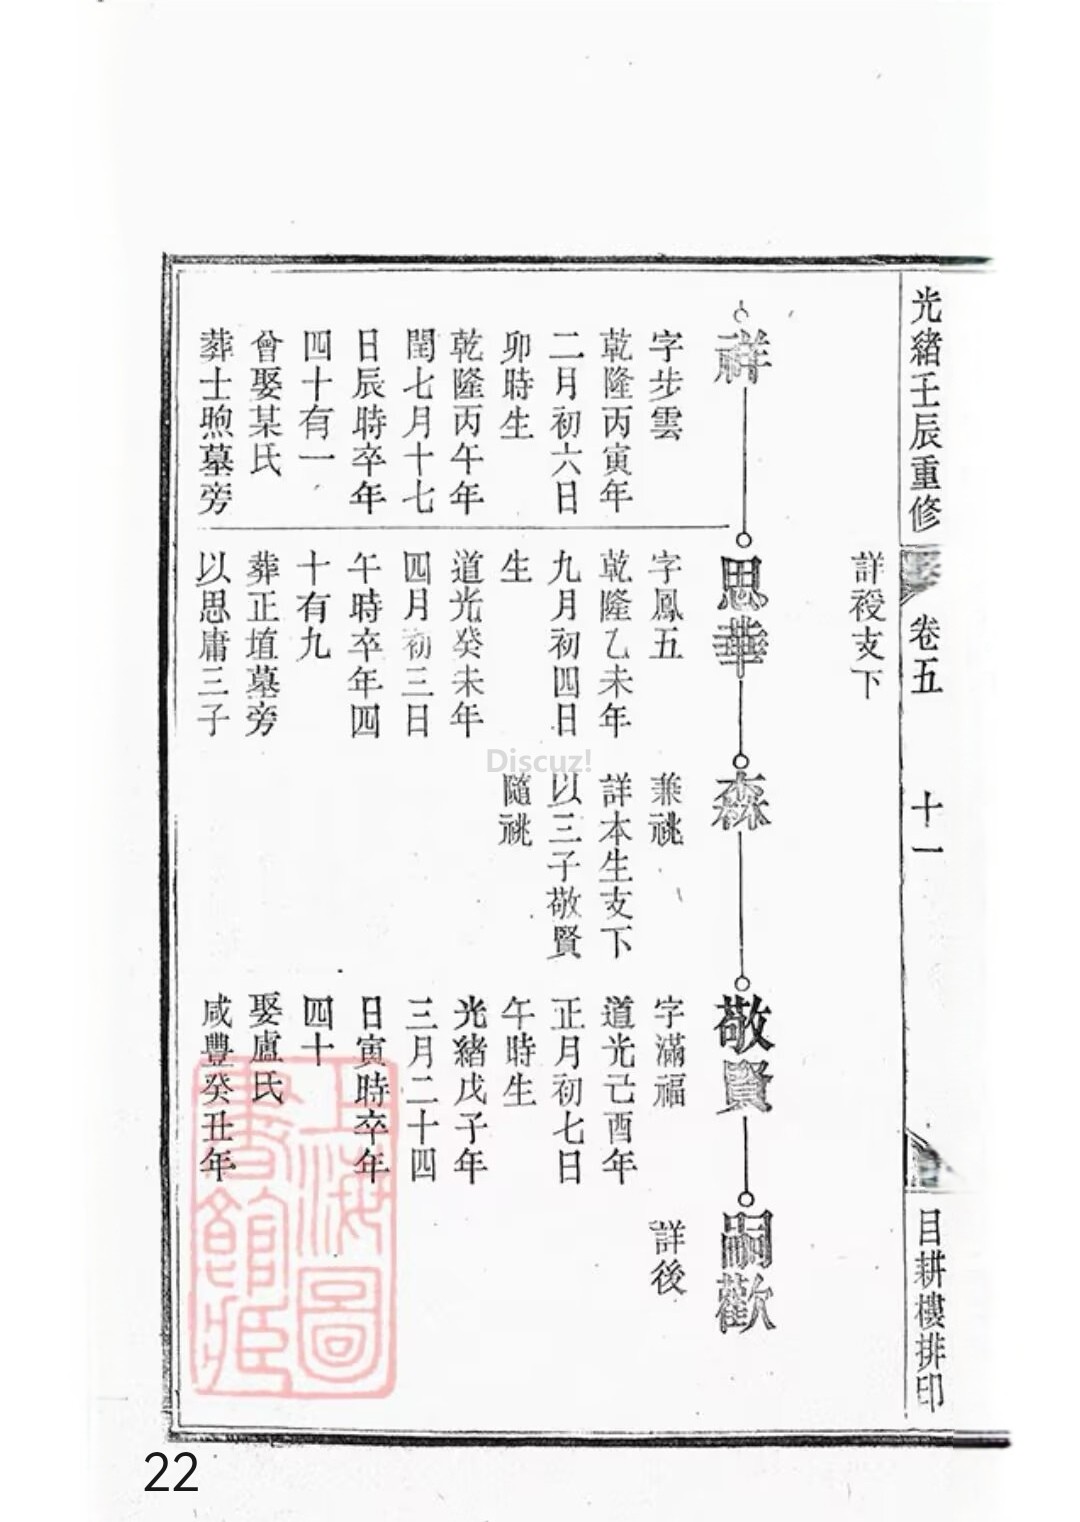 光緒壬辰重修
卷五
十一
目耕樓排印
詳祋支下
祥
字步雲
乾隆丙寅年
二月初六日
卯時生
乾隆丙午年
閏七月十七
日辰時卒年
四十有一
曾娶某氏
葬士煦墓旁
思華
字鳳五
乾隆乙未年
九月初四日
生
道光癸未年
四月初三日
午時卒年四
十有九
葬正埴墓旁
以思庸三子
森
兼祧
詳本生支下
以三子敬賢
隨祧
敬賢
字滿福
道光己酉年
正月初七日
午時生
光緒戊子年
三月二十四
日寅時卒年
四十
娶盧氏
咸豐癸丑年
嗣歡
詳後
上海圖
書館藏
Discuz!
22